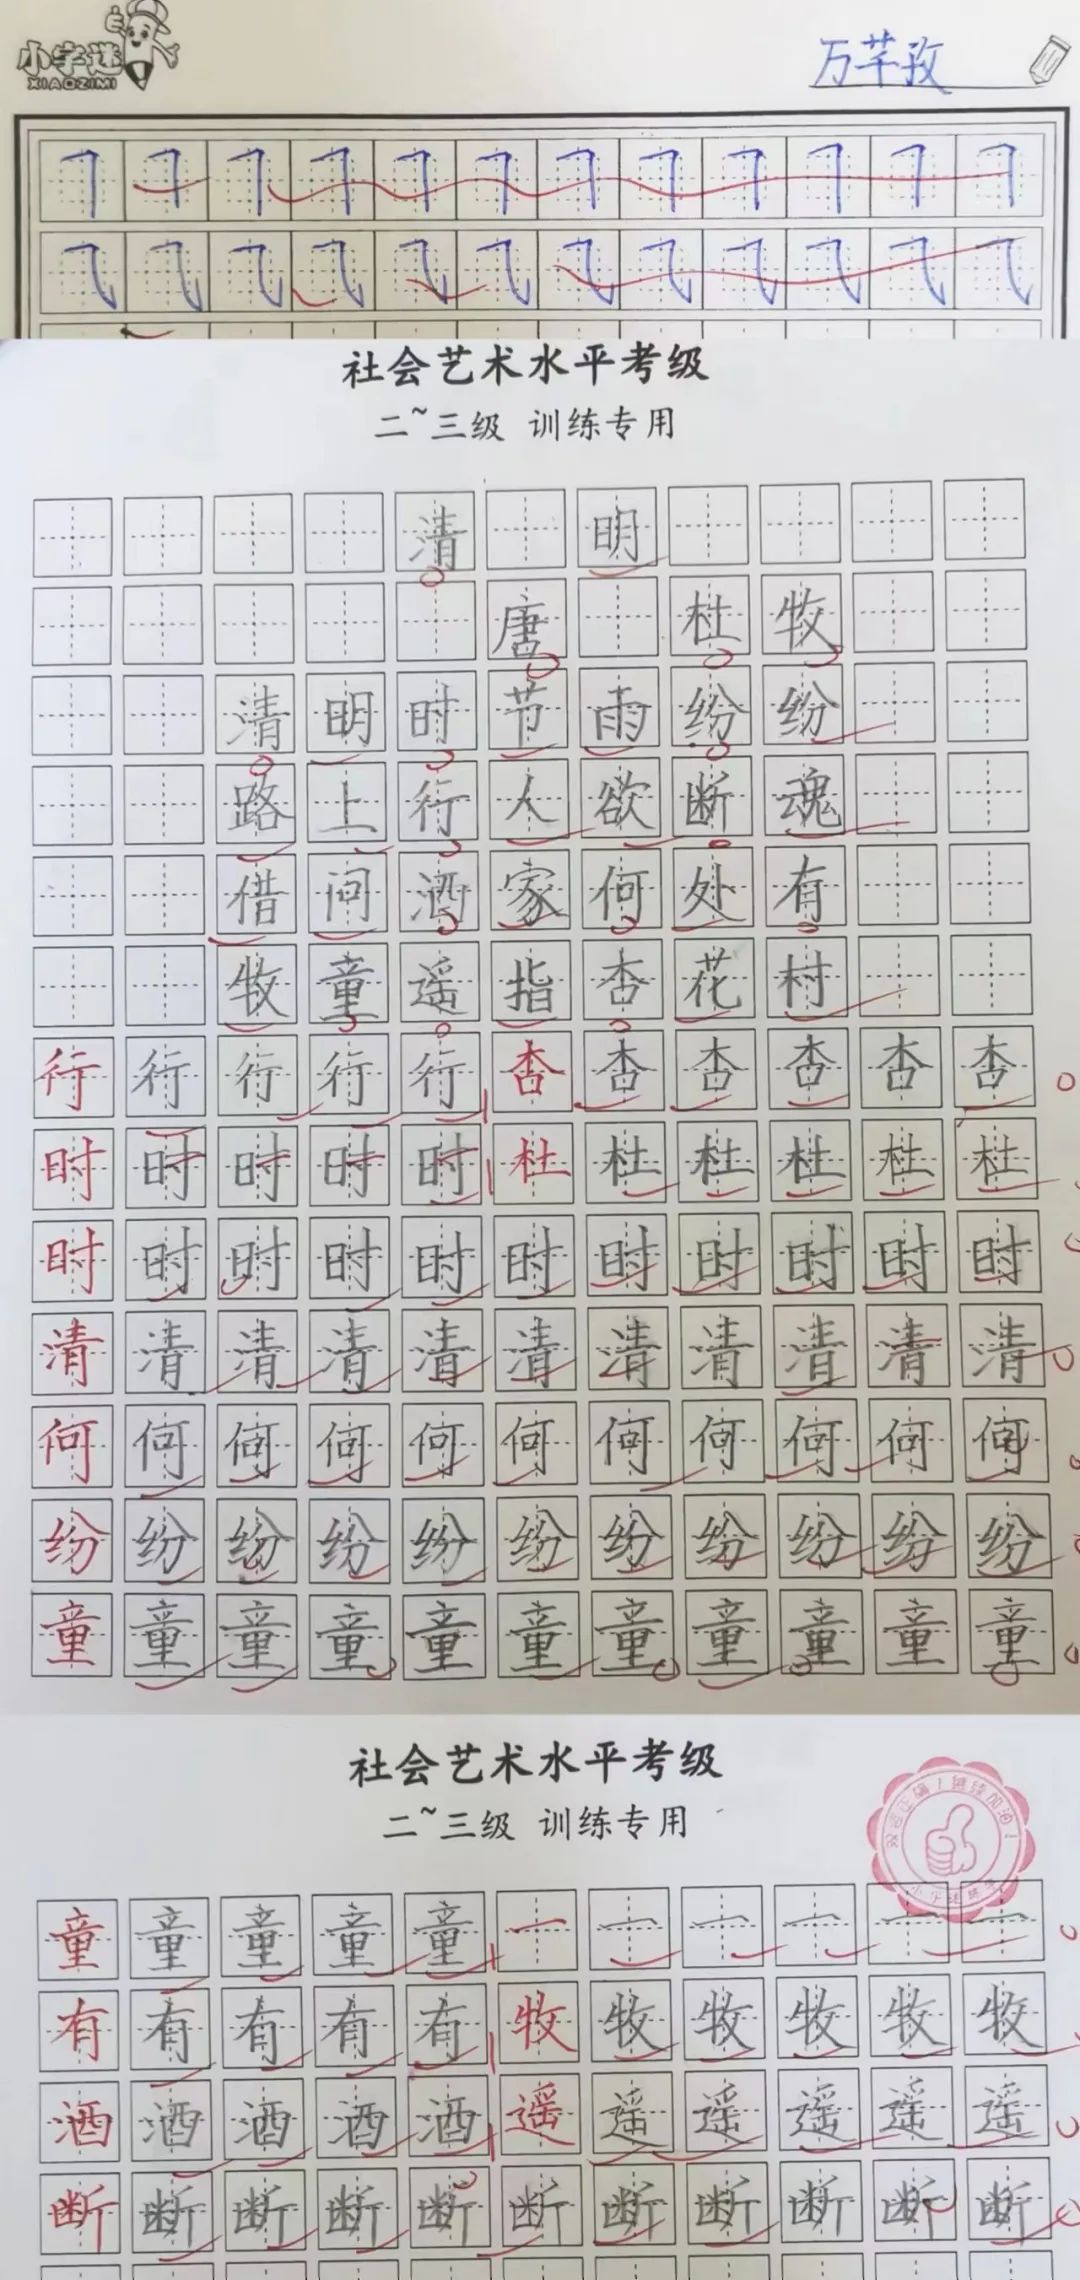 小字迷
XIAOZIMI
万芊孜
㇆ ㇆ ㇆ ㇆ ㇆ ㇆ ㇆ ㇆ ㇆ ㇆ ㇆ ㇆
⺄ ⺄ ⺄ ⺄ ⺄ ⺄ ⺄ ⺄ ⺄ ⺄ ⺄ ⺄
社会艺术水平考级
二~三级 训练专用
清 明
唐 杜牧
清明时节雨纷纷
路上行人欲断魂
借问酒家何处有
牧童遥指杏花村
行行行行行杏杏杏杏杏杏
时时时时时杜杜杜杜杜杜
时时时时时时时时时时时
清清清清清清清清清清清
何何何何何何何何何何何
纷纷纷纷纷纷纷纷纷纷纷
童童童童童童童童童童童
社会艺术水平考级
二~三级 训练专用
童童童童童一一一一一一
有有有有有牧牧牧牧牧牧
酒酒酒酒酒遥遥遥遥遥遥
断断断断断断断断断断断